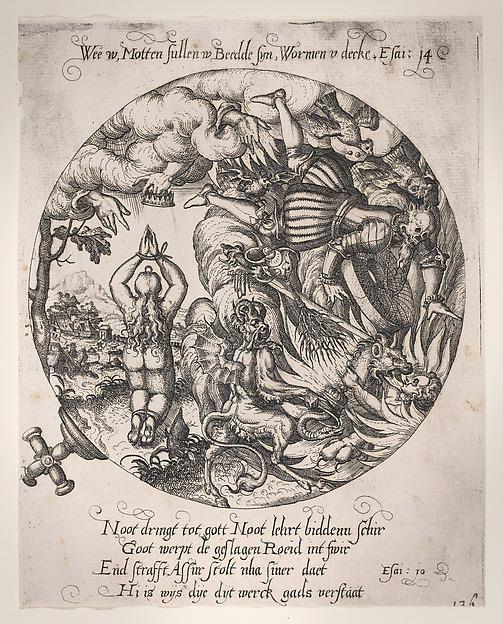 Wee w, Motten sullen w Bedde syn, Wormen v decke. Esai: 14
Noot dringt tot gott Noot lehrt biddenn sehir
Goot werpt de gslagen Roeid int fwir
End strafft Assur stolt nha siner daet
Esai: 10
Hi is wys dye dyt werck gads verstaat
136